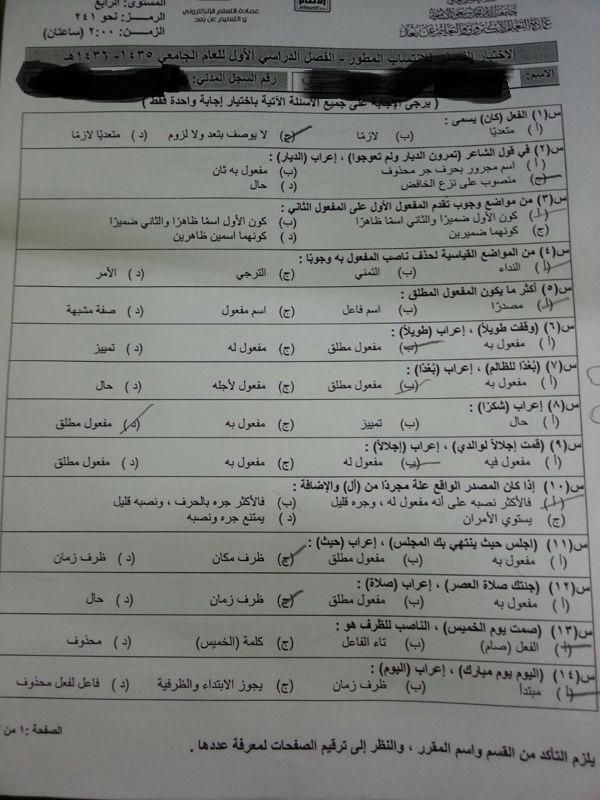 المستوى: الرابع
الرمز: نحو ٢٤١
الزمن: ٢:٠٠ (ساعتان)
عمادة التعلم الإلكتروني
و التعليم عن بُعد
الاختبار الفصلي للانتساب المطور - الفصل الدراسي الأول للعام الجامعي ١٤٣٥-١٤٣٦هـ
الاسم: رقم السجل المدني:
( يرجى الإجابة على جميع الأسئلة الآتية باختيار إجابة واحدة فقط )
س(١) الفعل (كان) يسمى :
( أ ) متعديًا (ب) لازمًا (ج) لا يوصف بتعد ولا لزوم ( د ) متعديًا لازمًا
س(٢) في قول الشاعر (تمرون الديار ولم تعوجوا) ، إعراب (الديار) :
( أ ) اسم مجرور بحرف جر محذوف (ب) مفعول به ثان
(ج) منصوب على نزع الخافض ( د ) حال
س(٣) من مواضع وجوب تقدم المفعول الأول على المفعول الثاني :
( أ ) كون الأول ضميرًا والثاني اسمًا ظاهرًا (ب) كون الأول اسمًا ظاهرًا والثاني ضميرًا
(ج) كونهما ضميرين ( د ) كونهما اسمين ظاهرين
س(٤) من المواضع القياسية لحذف ناصب المفعول به وجوبًا :
( أ ) النداء (ب) التمني (ج) الترجي ( د ) الأمر
س(٥) أكثر ما يكون المفعول المطلق :
( أ ) مصدرًا (ب) اسم فاعل (ج) اسم مفعول ( د ) صفة مشبهة
س(٦) (وقفت طويلاً) ، إعراب (طويلاً) :
( أ ) مفعول به (ب) مفعول مطلق (ج) مفعول له ( د ) تمييز
س(٧) (بُعْدًا للظالم) ، إعراب (بُعْدًا) :
( أ ) مفعول به (ب) مفعول مطلق (ج) مفعول لأجله ( د ) حال
س(٨) إعراب (شكرًا) :
( أ ) حال (ب) تمييز (ج) مفعول به ( د ) مفعول مطلق
س(٩) (قمت إجلالاً لوالدي) ، إعراب (إجلالاً) :
( أ ) مفعول فيه (ب) مفعول له (ج) مفعول به ( د ) مفعول مطلق
س(١٠) إذا كان المصدر الواقع علة مجردًا من (أل) والإضافة :
( أ ) فالأكثر نصبه على أنه مفعول له ، وجره قليل (ب) فالأكثر جره بالحرف ، ونصبه قليل
(ج) يستوي الأمران ( د ) يمتنع جره ونصبه
س(١١) (اجلس حيث ينتهي بك المجلس) ، إعراب (حيث) :
( أ ) مفعول به (ب) مفعول مطلق (ج) ظرف مكان ( د ) ظرف زمان
س(١٢) (جئتك صلاة العصر) ، إعراب (صلاة) :
( أ ) مفعول به (ب) مفعول مطلق (ج) ظرف زمان ( د ) حال
س(١٣) (صمت يوم الخميس) ، الناصب للظرف هو :
( أ ) الفعل (صام) (ب) تاء الفاعل (ج) كلمة (الخميس) ( د ) محذوف
س(١٤) (اليوم يوم مبارك) ، إعراب (اليوم) :
( أ ) مبتدأ (ب) ظرف زمان (ج) يجوز الابتداء والظرفية ( د ) فاعل لفعل محذوف
الصفحة : ١ من
يلزم التأكد من القسم واسم المقرر ، والنظر إلى ترقيم الصفحات لمعرفة عددها .